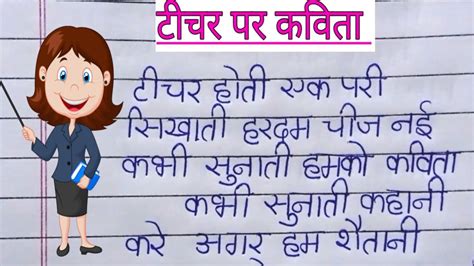 टीचर पर कविता
टीचर होती एक परी
सिखाती हरदम चीज नई
कभी सुनाती हमको कविता
कभी सुनाती कहानी
करे अगर् हम शैतानी